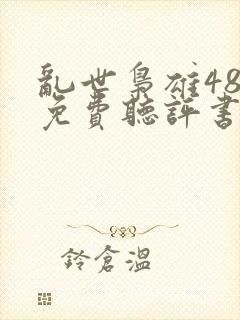 亂世梟雄48
免費聽評書
鈴倉溫